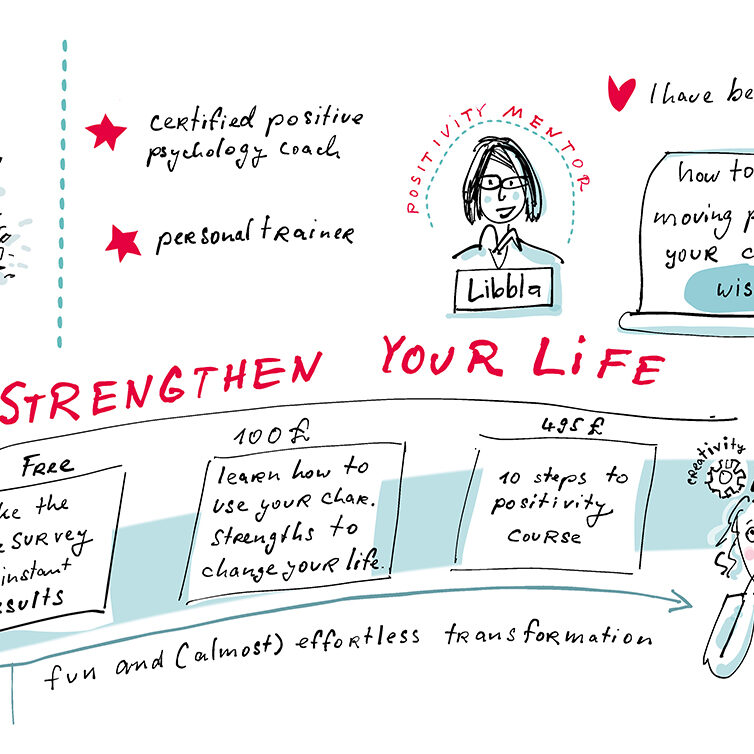 certified positive
psychology coach
personal trainer
POSITIVITY MENTOR
Libbla
I have be
how to
moving p
your c
wis
STRENGTHEN YOUR LIFE
FREE
ke the
SURVEY
instant
esults
100£
learn how to
use your char.
strengths to
change your life.
495£
10 steps to
positivity
course
creativity
fun and (almost) effortless transformation